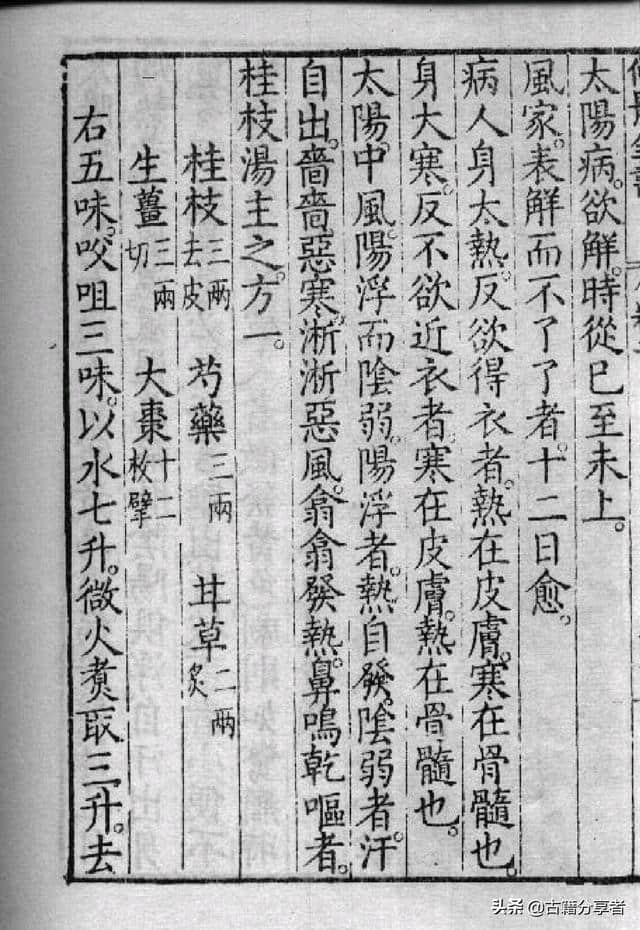 太陽病。欲解。時從巳至未上。
風家。表解而不了了者。十二日愈。
病人身太熱。反欲得衣者。熱在皮膚。寒在骨髓也。
身大寒。反不欲近衣者。寒在皮膚。熱在骨髓也。
太陽。中風。陽浮而陰弱。陽浮者。熱自發。陰弱者。汗
自出。嗇嗇惡寒。淅淅惡風。翕翕發熱。鼻鳴乾嘔者。
桂枝湯主之。方一。
桂枝三兩去皮 芍藥三兩 甘草二兩炙
生薑三兩切 大棗十二枚擘
右五味。㕮咀三味。以水七升。微火煮取三升。去
头条 @古籍分享者